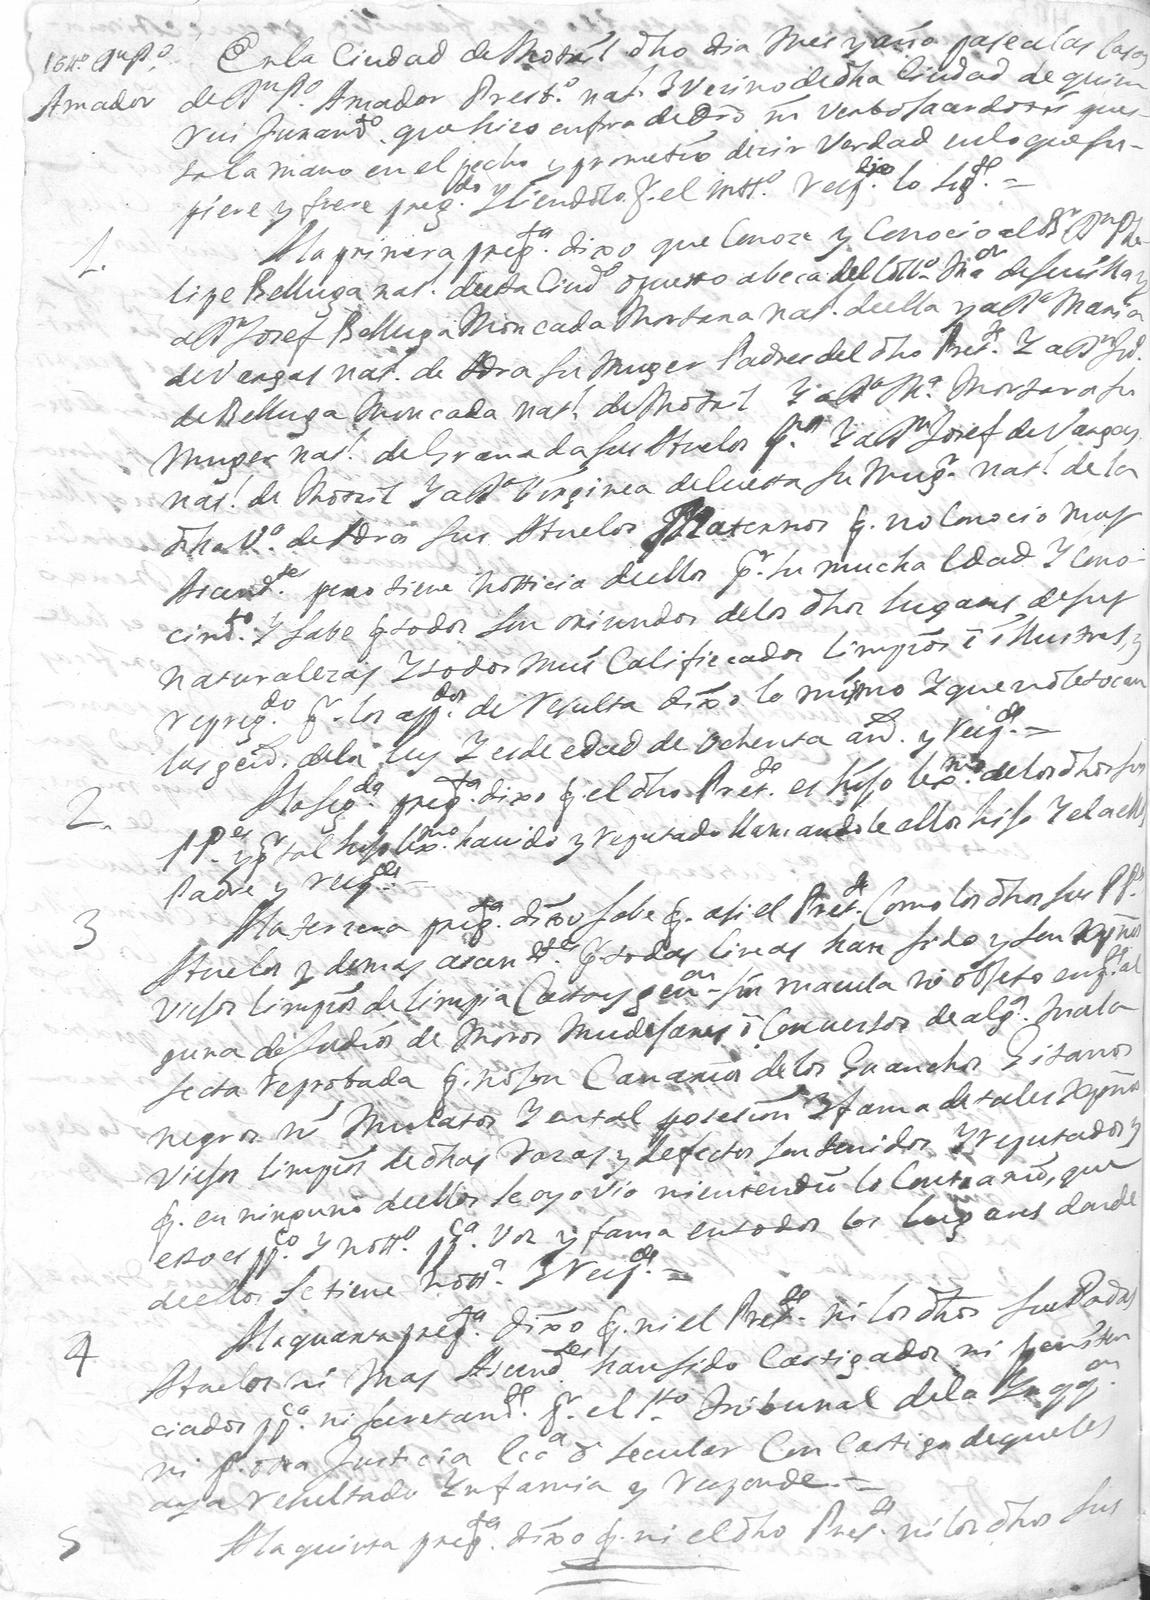 164º Dn Pº En la Ciudad de Motril dho dia mes y año pase a las Casas
Amador de Dn Pº. Amador Presb.º nat.l y Vecino de dha Ciudad de quien
rezi Juramto. que hizo en fra de dro in verbo sacerdotis pues-
ta la mano en el pecho y prometio dezir Verdad en lo que su-
piere y fuere preg.do y siendolo p.r el intt.º Resp.e dijo lo sig.te =
1. A la primera preg.ta dixo que Conoze y Conocio al Br Dn Phe-
lipe Belluga nat. de esta Ciud opuesto a beca del Coll.º Ma.or de Sevilla y
a Dn Josef Belluga Moncada Mortara nat. de ella y a Dª Maria
de Vargas nat. de Adra su Muger Padres del dho Pret.te Y a Dn Jud.
de Belluga Moncada nat.l de Motril Y a Dª Mª. Mortara su
Muger nat.l de Granada sus Avuelos P.nos Y a Dn Josef de Vargas
nat.l de Motril Y a Dª Virginea de Cuesta su Mug.r nat.l de la
dha V.ª de Adra sus Avuelos Maternos q. no Conocio mas
Ascend.tes pero tiene notticia de ellos p.r su mucha Edad Y Cono-
cim.to Y sabe q todos son oriundos de los dhos lugares de sus
naturalezas Y todos mui Calificados limpios è illustres, y
repreg.do p.r los app.dos de resulta dixo lo mismo Y que no le tocan
las gen. de la ley Y es de edad de ochenta añ. y Resp.de =
2. A la seg.da preg.ta dixo q. el dho Pret.de es hijo lex.mo de los dhos sus
PP.es y p.r tal hijo lex.mo havido y reputado llamandole ellos hijo Y el a ellos
Padre y resp.de =
3 A la tercera preg.ta dixo sabe q. asi el Pret.de Como los dhos sus PP.es
Avuelos y demas ascen.tes p.r todas lineas han sido y son Xpños
Viejos limpios de limpia Casta y gen.on sin macula ni objeto en q.e al
guna de Judios de Moros Mudejares ò Conversos de alg.ª mala
secta reprobada q. no son Canarios de los Guanchos Gitanos
negros ni Mulatos Y en tal posesion Y fama de tales Xpños
Viejos limpios de dhas razas y defectos son tenidos Y reputados y
q. en ninguno de ellos se oyo vio ni entendio lo Contrario, que
esto es pp.co Y nott.º pp.ca Voz y fama en todos los lugares donde
de ellos se tiene nott.ª Y Resp.de =
4 A la quarta preg.ta dixo q. ni el Pret.de ni los dhos sus Padres
Avuelos ni mas Ascend.tes han sido Castigados ni peniten
ciados pp.ca ni secretam.te p.r el S.to Tribunal de la Inqq.on
ni p.r otra Justicia Ecc.ª ò secular Con Castigo de que les
aya resultado Ynfamia y responde. =
5 A la quinta preg.ta dixo q. ni el dho Pret.de ni los dhos sus